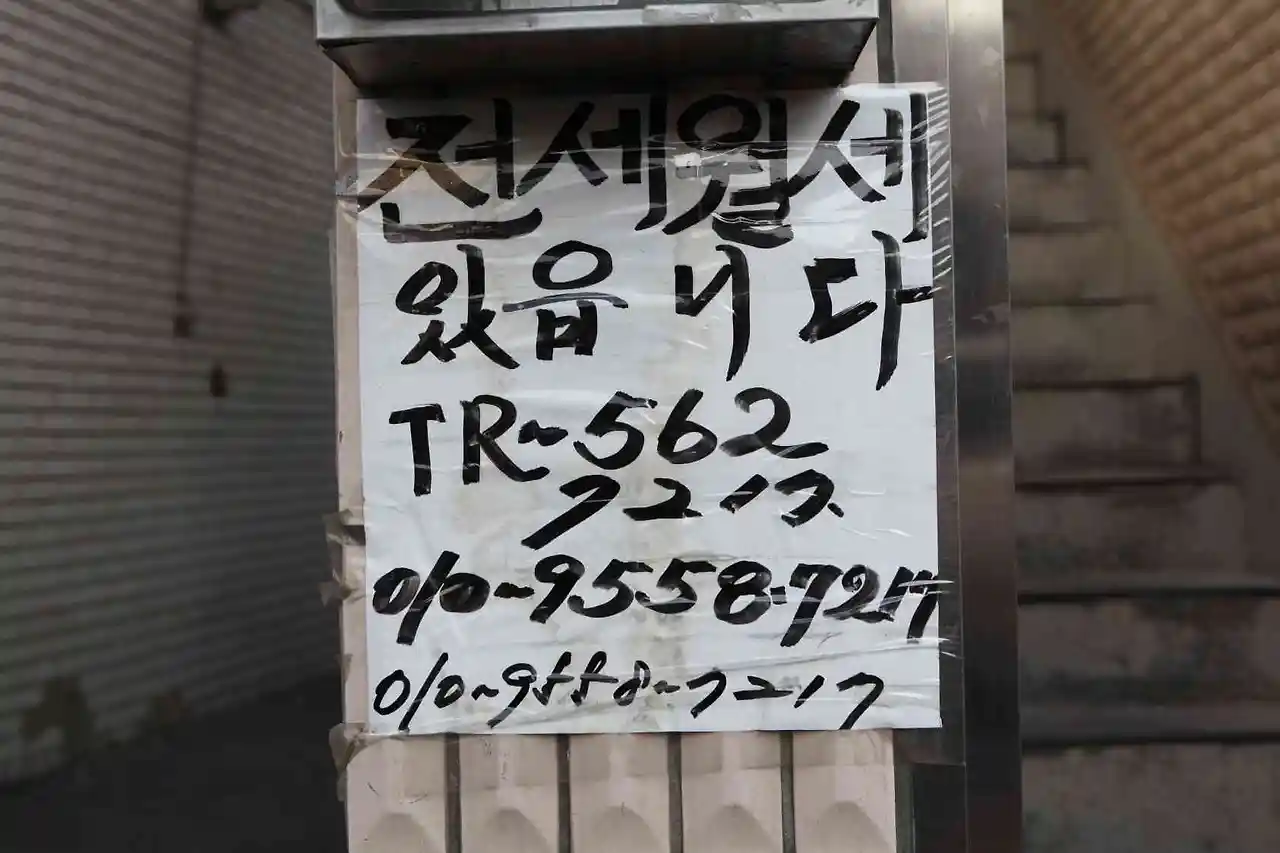 전세월세
있읍니다
TR~562
7217
010~9558-7217
010~9558~7217